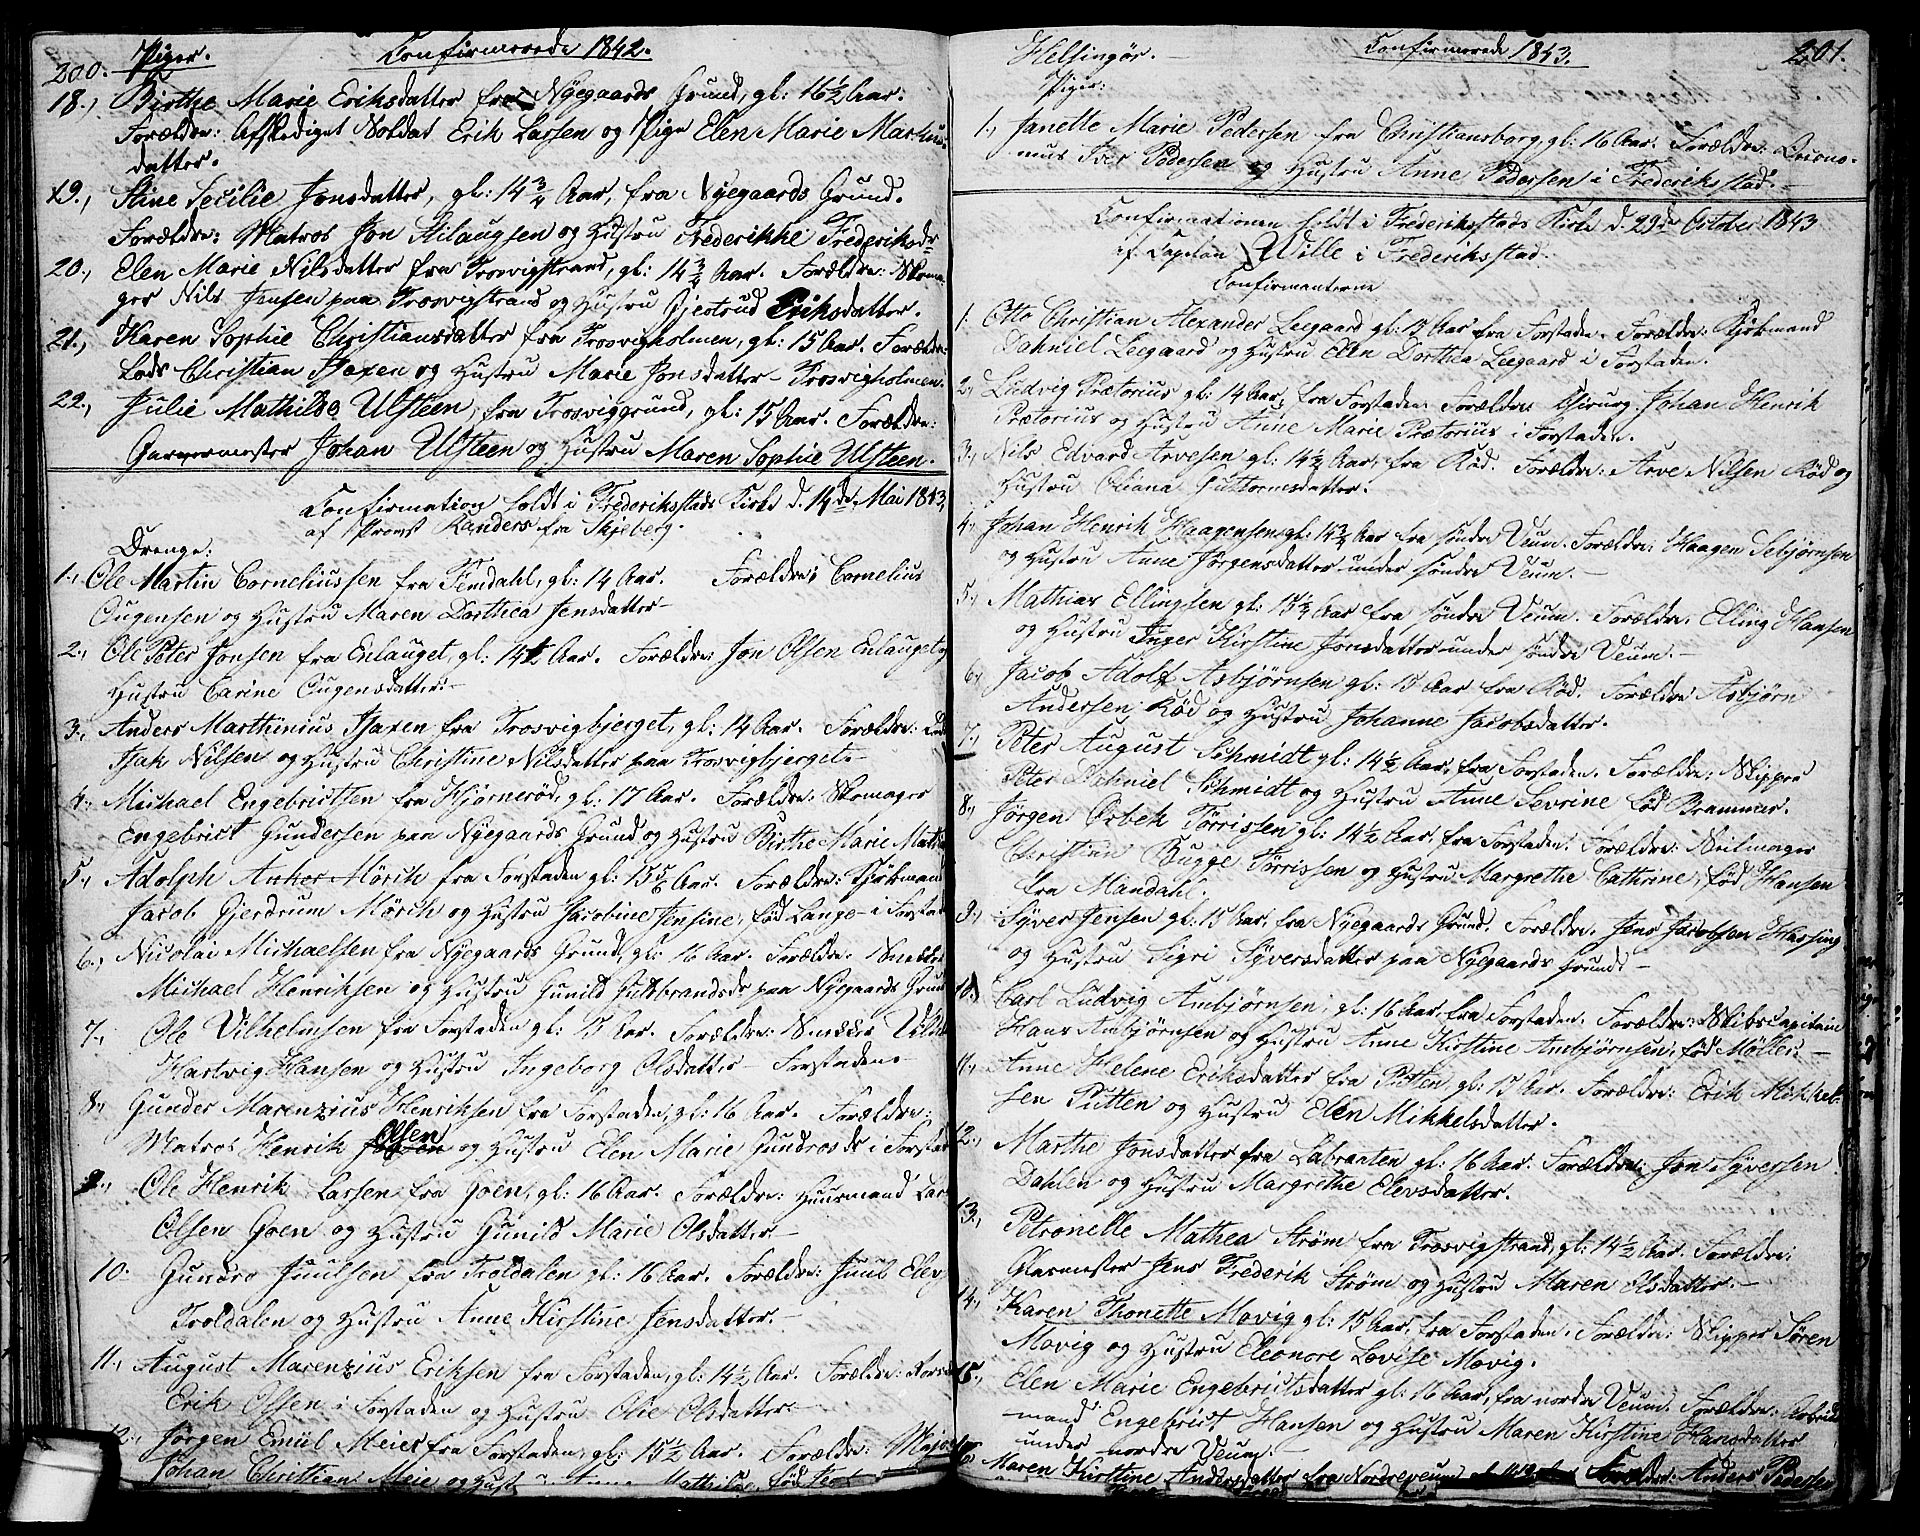 200. Piger. Confirmerede 1842.
18., Birthe Marie Eriksdatter fra Nyegaards Grund, gl: 16½ Aar.
Forældre: Afskediget Soldat Erik Larsen og Pige Elen Marie Mathis-
datter.
19., Stine Secilie Jonsdatter, gl: 14¾ Aar, fra Nyegaards Grund.
Forældre: Matros Jon Stilaugsen og Hustru Frederikke Frederiksdr
20., Elen Marie Nilsdatter fra Trosvigstrand, gl: 14¾ Aar. Forældre: Skoma-
ger Nils Jensen paa Trosvigstrand og Hustru Gjertrud Eriksdatter.
21., Karen Sophie Christiansdatter fra Trosvigholmen, gl: 15 Aar. Forældre:
Lods Christian Isaxen og Hustru Marie Jonsdatter Trosvigholmen.
22., Julie Mathilde Ulsteen, fra Trosviggrund, gl: 15 Aar. Forældre:
Garvermester Johan Ulsteen og Hustru Maren Sophie Ulsteen.
Confirmation holdt i Frederiksstads Kirke d. 14de Mai 1843,
af Provst Randers fra Skjeberg.
Drenge:
1., Ole Martin Corneliussen fra Femdahl, gl: 14 Aar. Forældre: Cornelius
Ougensen og Hustru Maren Dorthea Jensdatter
2., Ole Peter Jonsen fra Enlauget, gl: 14½ Aar. Forældre: Jon Olsen Enlauget og
Hustru Carine Ougensdatter.
3., Anders Marthinius Isaxen fra Trosvigbjerget, gl: 14 Aar. Forældre: Lods
Isak Nilsen og Hustru Christine Nilsdatter paa Trosvigbjerget.
4., Michael Engebrictsen fra Hjørnerød, gl: 17 Aar. Forældre: Skomager
Engebrict Gundersen paa Nyegaards Grund og Hustru Birthe Marie
5., Adolph Anker Mörch fra Forstaden gl: 15 Aar. Forældre: Kjøbmand
Jacob Gjerdrum Mörch og Hustru Jacobine Jensine, fød Lange i Forstad
6., Nicolai Michaelsen fra Nyegaards Grund, gl: 16 Aar. Forældre:
Michael Henriksen og Hustru Gunild Guldbrandsdr paa Nyegaards Grund
7., Ole Vilhelmsen fra Forstaden gl: 15 Aar. Forældre:
Hartvig Hansen og Hustru Ingeborg Olsdatter Forstaden
8., Gunder Marenzius Henriksen fra Forstaden, gl: 16 Aar. Forældre:
Matros Henrik Olsen og Hustru Elen Marie Gundersdr i Forstad
9., Ole Henrik Larsen fra Goen, gl: 16 Aar. Forældre: Huusmand Lars
Olsen Goen og Hustru Gunild Marie Olsdatter.
10. Gunero Juulsen fra Troldalen gl: 16 Aar. Forældre: Juul
Troldalen og Hustru Anne Kirstine Jensdatter.
11., August Marenzius Eriksen fra Forstaden, gl: 14½ Aar. Forældre:
Erik Olsen i Forstaden og Hustru Olie Olsdatter.
12., Jørgen Emil Meier fra Forstaden, gl: 15½ Aar. Forældre: Major
Johan Christian Meie og Hust Mathilde, fød
Helsingör. Confirmerede 1843. 201.
Piger:
1., Janette Marie Pedersen fra Christiansborg, gl: 16 Aar. Forældre: Oecono-
mus Iver Pedersen og Hustru Anne Pedersen i Frederiksstad.
Confirmationen holdt i Frederiksstads Kirke d. 29de October 1843
af Capelan Wille i Frederiksstad.
Confirmanterne
1. Otto Christian Alexander Leegaard gl: 15 Aar fra Forstaden. Forældre: Kjøbmand
Dahniel Leegaard og Hustru Elen Dorthea Leegaard i Forstaden.
2., Ludvig Prætorius gl: 14 Aar, fra Forstaden. Forældre: Chirurg. Johan Henrik
Prætorius og Hustru Anne Marie Prætorius i Forstaden.
3., Nils Edvard Arvesen gl: 14½ Aar, fra Röd. Forældre: Arve Nilsen Röd og
Hustru Oliana Guttormsdatter.
4., Johan Henrik Haagensen gl: 15¾ Aar fra søndre Veum. Forældre: Haagen Sebjørnsen
og Hustru Anne Jørgensdatter under søndre Veum.
5., Mathias Ellingsen gl: 15½ Aar fra søndre Veum. Forældre: Elling Hansen
og Hustru Inger Kirstine Jonsdatter under søndre Veum.
6., Jacob Adolf Asbjørnsen gl: 15 Aar fra Röd. Forældre: Asbjørn
Andersen Röd og Hustru Johanne Jacobsdatter.
7., Peter August Schmidt gl: 14½ Aar, fra Forstaden. Forældre: Skipper
Peter Dahniel Schmidt og Hustru Anne Sevrine fød Brammer.
8., Jørgen Orbek Törrissen gl: 14½ Aar, fra Forstaden. Forældre: Seilmager
Christian Bugge Törrissen og Hustru Margrethe Cathrine, fød Hansen
fra Mandahl.
9., Syver Jensen gl: 15 Aar, fra Nyegaards Grund. Forældre: Jens Jacobsen Hassing
og Hustru Sigri Syversdatter paa Nyegaards Grund
10., Carl Ludvig Ambjørnsen, gl: 16 Aar, fra Forstaden. Forældre: Skibscapitain
Hans Ambjørnsen og Hustru Anne Kirstine Ambjørnsen, fød Möller.
11., Anne Helene Eriksdatter fra Putten, gl: 15 Aar. Forældre: Erik Mikkel-
sen Putten og Hustru Elen Mikkelsdatter.
12., Marthe Jonsdatter fra Labraaten gl: 16 Aar. Forældre: Jon Syversen
Dahlen og Hustru Margrethe Elevsdatter.
13., Petronelle Mathea Ström fra Trosvigstrand, gl: 14½ Aar. Forældre:
Glarmester Jens Frederik Ström og Hustru Maren Olsdatter.
14., Karen Thonette Movig gl: 15 Aar, fra Forstaden. Forældre: Skipper Sören
Movig og Hustru Eleonore Lovise Movig.
15., Elen Marie Engebrictsdatter gl: 16 Aar, fra nordre Veum. Forældre: Arbeids
mand Engebrict Hansen og Hustru Maren Kirstine Hansdatter
under nordre Veum.
16., Maren Kirstine Andersdatter fra Nordreveum Forældre: Anders Pedersen